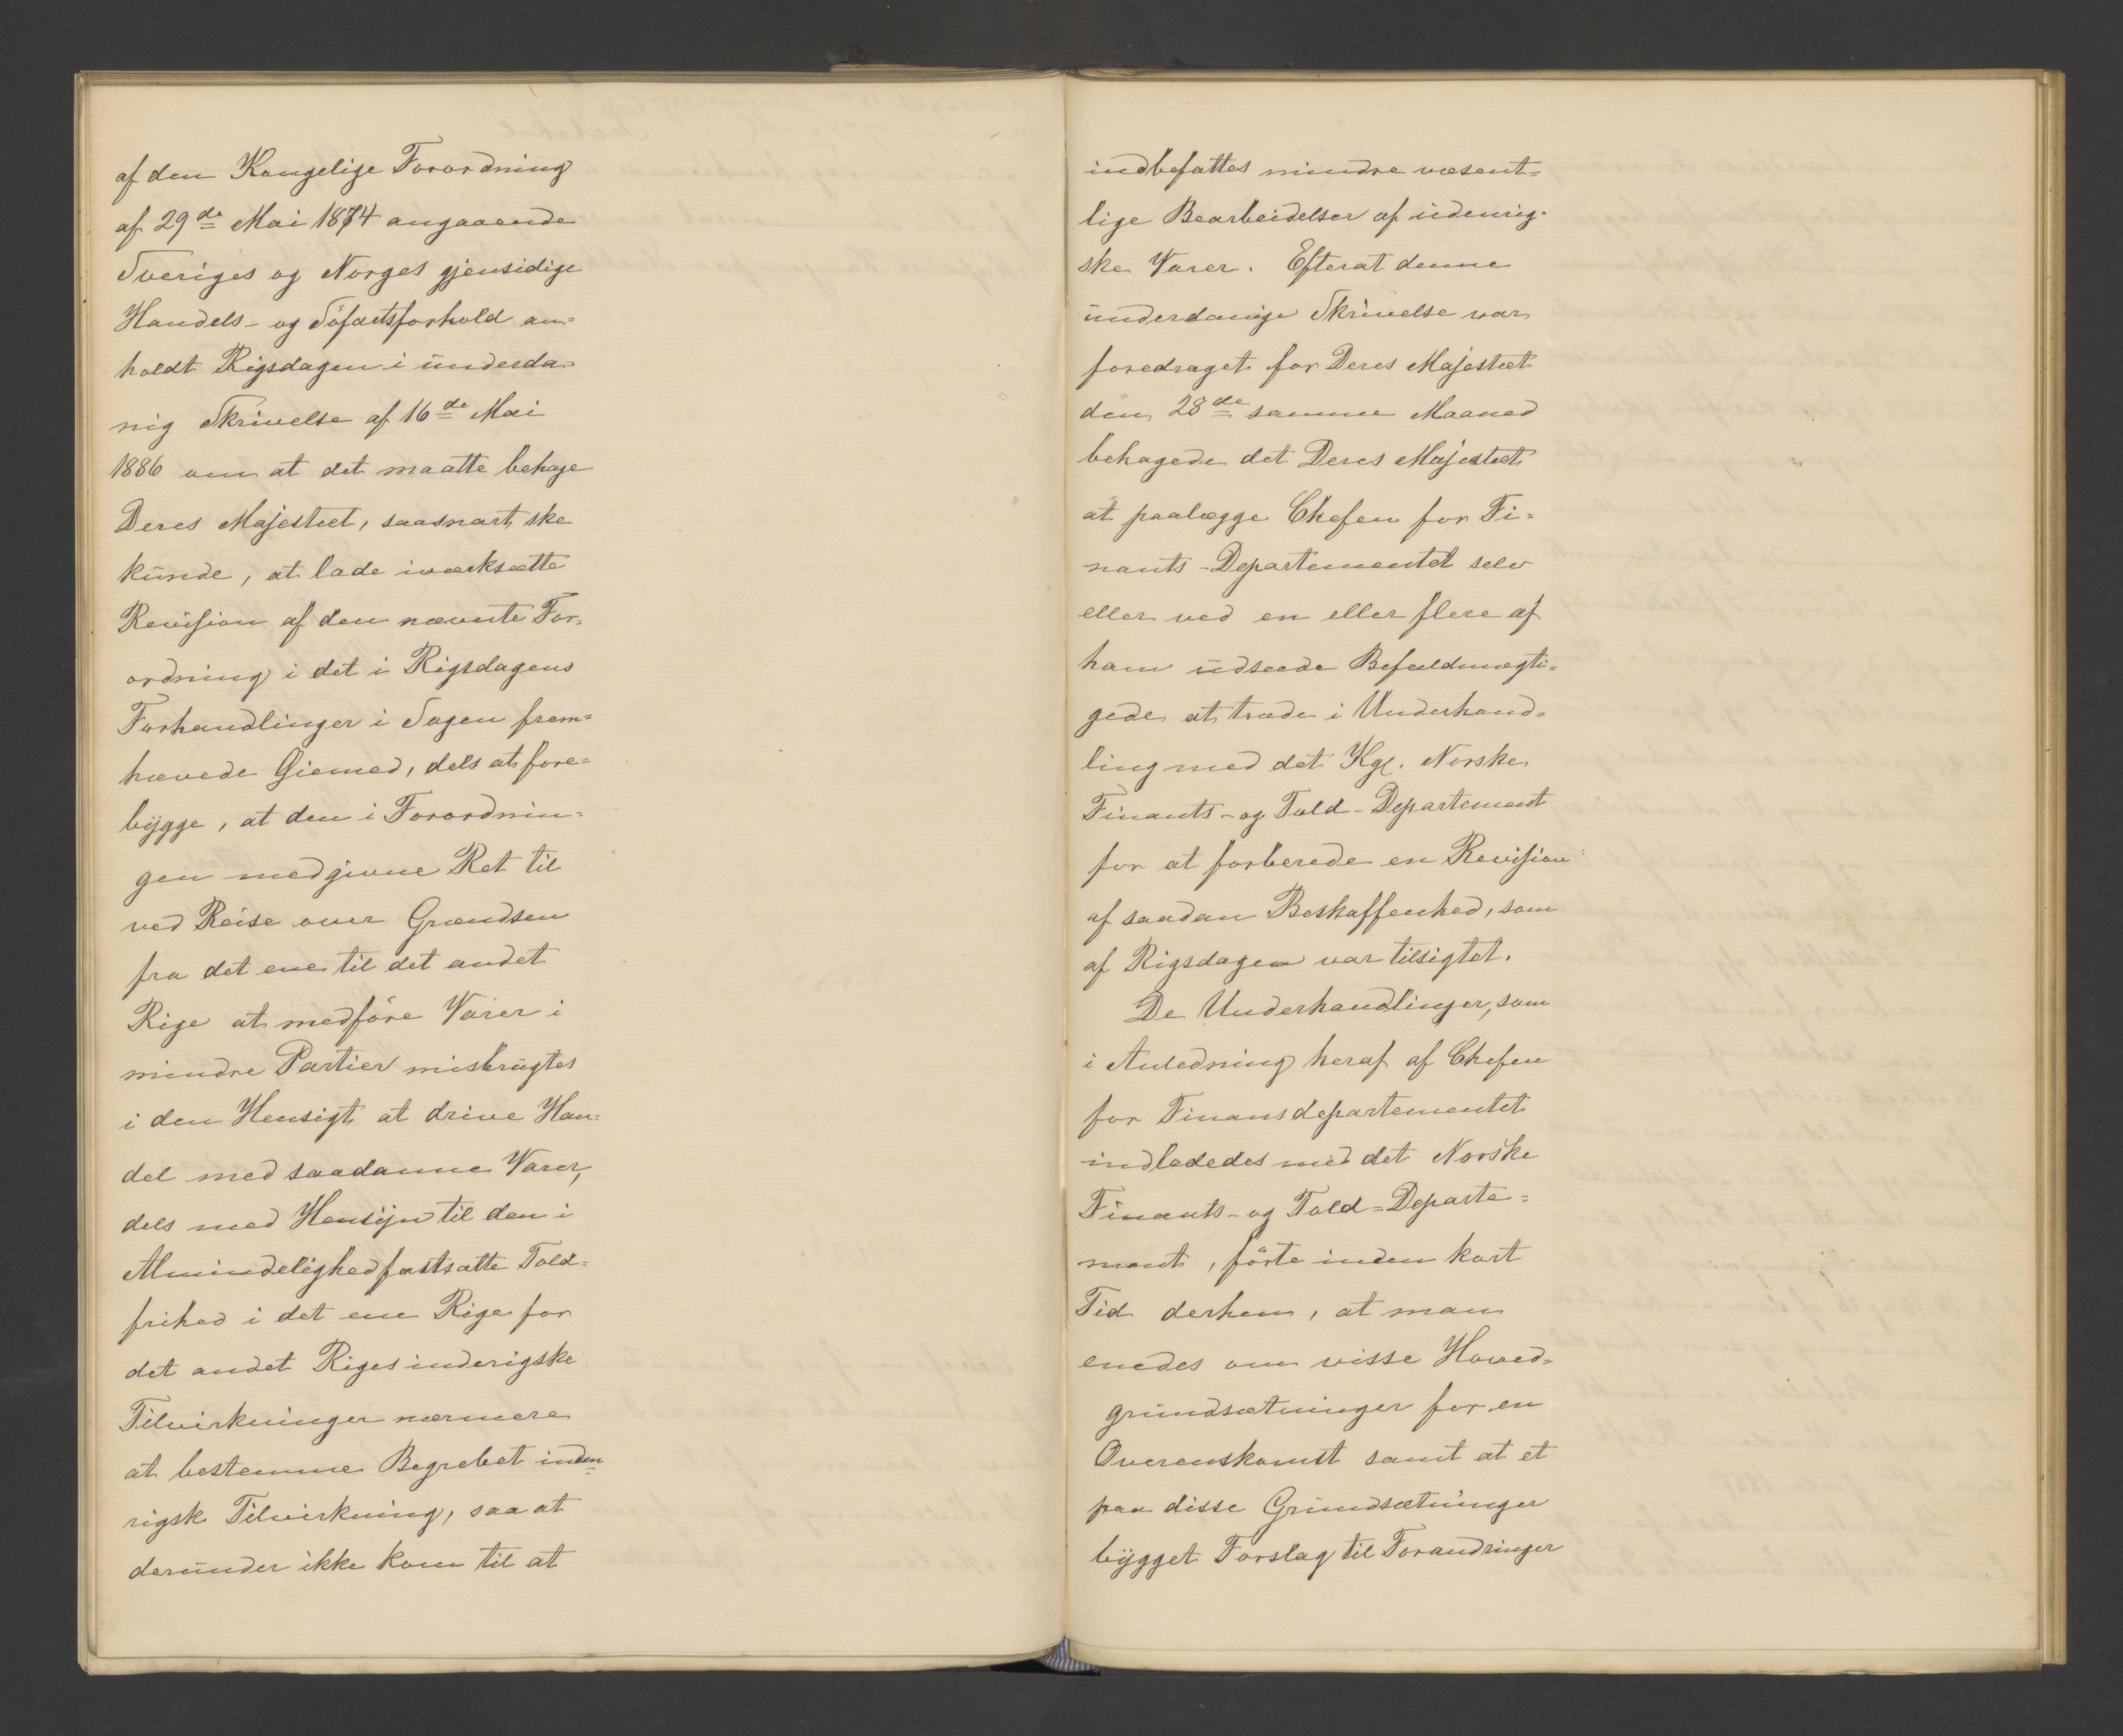 af den Kongelige Forordning
af 29de Mai 1874 angaaende
Sveriges og Norges gjensidige
Handels- og Söfartsforhold an=
holdt Rigsdagen i underda=
nig Skrivelse af 16de Mai
1886 om at det maatte behage
Deres Majestæt, saasnart ske
kunde, at lade iværksætte
Revision af den nævnte For=
ordning i det i Rigsdagens
Forhandlinger i Sagen frem=
hævede Øiemed, dels at fore=
bygge, at den i Forordnin=
gen medgivne Ret til
ved Reise over Grændsen
fra det ene til det andet
Rige at medföre Varer i
mindre Partier misbrugtes
i den Hensigt at drive Han=
del med saadanne Varer,
dels med Hensyn til den i
Almindelighed fastsatte Told=
frihed i det ene Rige for
det andet Riges inderigske
Tilvirkninger nærmere
at bestemme Begrebet inden=
rigsk Tilvirkning, saa at
derunder ikke kom til at
indbefattes mindre væsent=
lige Bearbeidelser af udenrig=
ske Varer. Efterat denne
underdanige Skrivelse var
foredraget for Deres Majestæt
den 28de samme Maaned
behagede det Deres Majestæt
at paalægge Chefen for Fi=
nants-Departementet selv
eller ved en eller flere af
ham udseede Befuldmægti=
gede at træde i Underhand=
ling med det Kgl. Norske
Finants- og Told-Departement
for at forberede en Revision
af saadan Beskaffenhed, som
af Rigsdagen var tilsigtet.
De Underhandlinger, som
i Anledning heraf af Chefen
for Finansdepartementet
indlededes med det Norske
Finants- og Told=Departe=
ment, förte inden kort
Tid derhen, at man
enedes om visse Hoved=
grundsætninger for en
Overenskomst samt at et
paa disse Grundsætninger
bygget Forslag til Forandringer